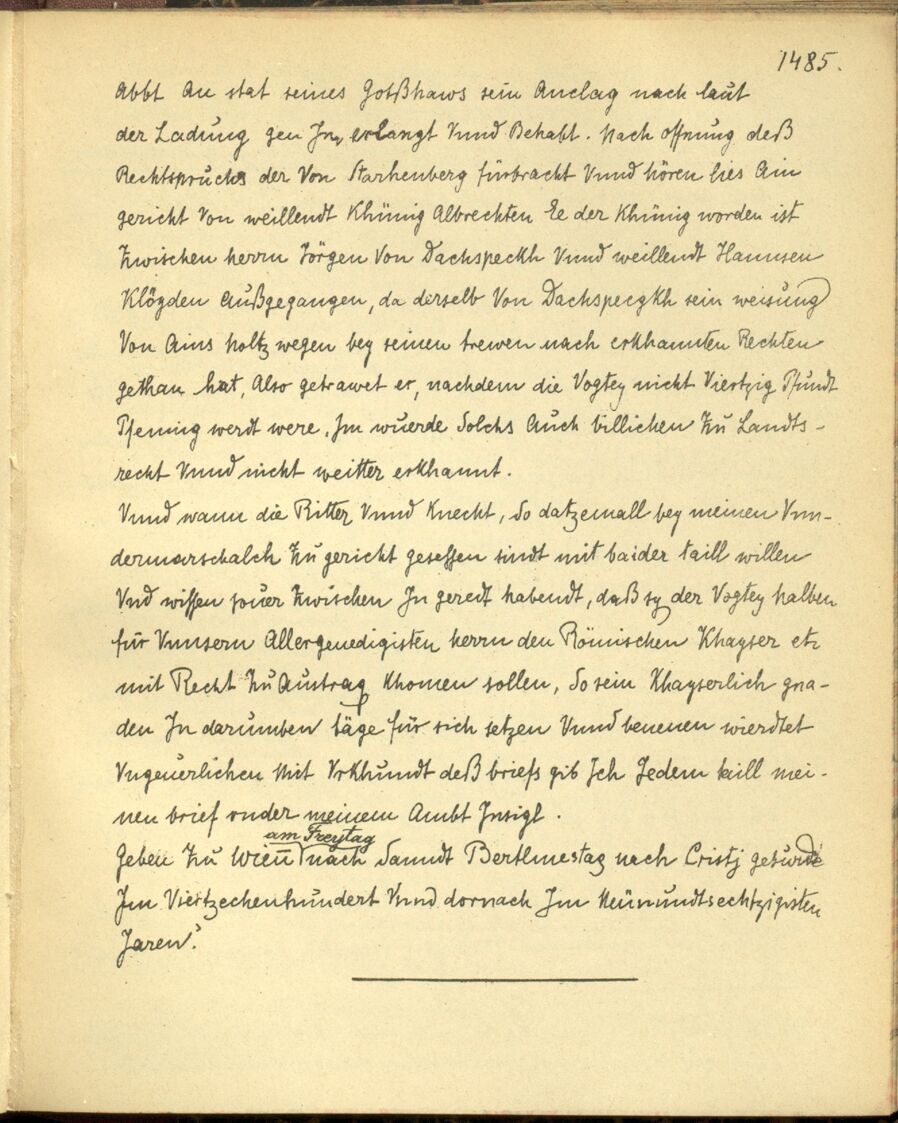 1485.
Abbt An stat seines Gotßhaws sein Anclag nach laut
der Ladung gen Jn, erlangt Vnnd Behabt. Nach offnung deß
Rechtspruchs der Von Starhenberg fürbracht Vnnd hören lies Ain
gericht Von weillendt Khünig Albrechten Ee der Khünig worden ist
Zwischen herrn Jörgen Von Dachspeckh Vnnd weillendt Hannsen
Klözden Außgegangen, da derselb Von Dachspecgkh sein weisung
Von Ains holtz wegen bey seinen trewen nach erkhannten Rechten
gethan hat, Also getrawet er, nachdem die Vogtey nicht Viertzig Pfundt
Pfening werdt were, Jm wuerde Solchs Auch billichen Zu Landts-
recht Vnnd nicht weitter erkhannt.
Vnnd wann die Ritter Vnnd Knecht, So datzemall bey meinen Vnn-
dermarschalch Zu gericht gesessen sindt mit baider taill willen
Vnd wissen souer Zwischen Jn geredt habendt, daß sy der Vogtey halben
für Vnnsern Allergenedigisten herrn den Römischen Khayser etc
mit Recht Zu Austrag khomen sollen, So sein Khayserlich gna-
den Jn darumben täge für sich setzen Vnnd benenen wierdtet
Vngeuerlichen Mit Vrkhundt deß briefs gib Ich Jedem taill mei-
nen brief vnder meinem Ambt Jnsigl.
am Freytag
Geben Zu Wienn nach Sanndt Bertlmestag nach Cristj geburde
Jm Viertzechenhundert Vnnd dornach Jm Neünundtsechtzigisten
Jaren.